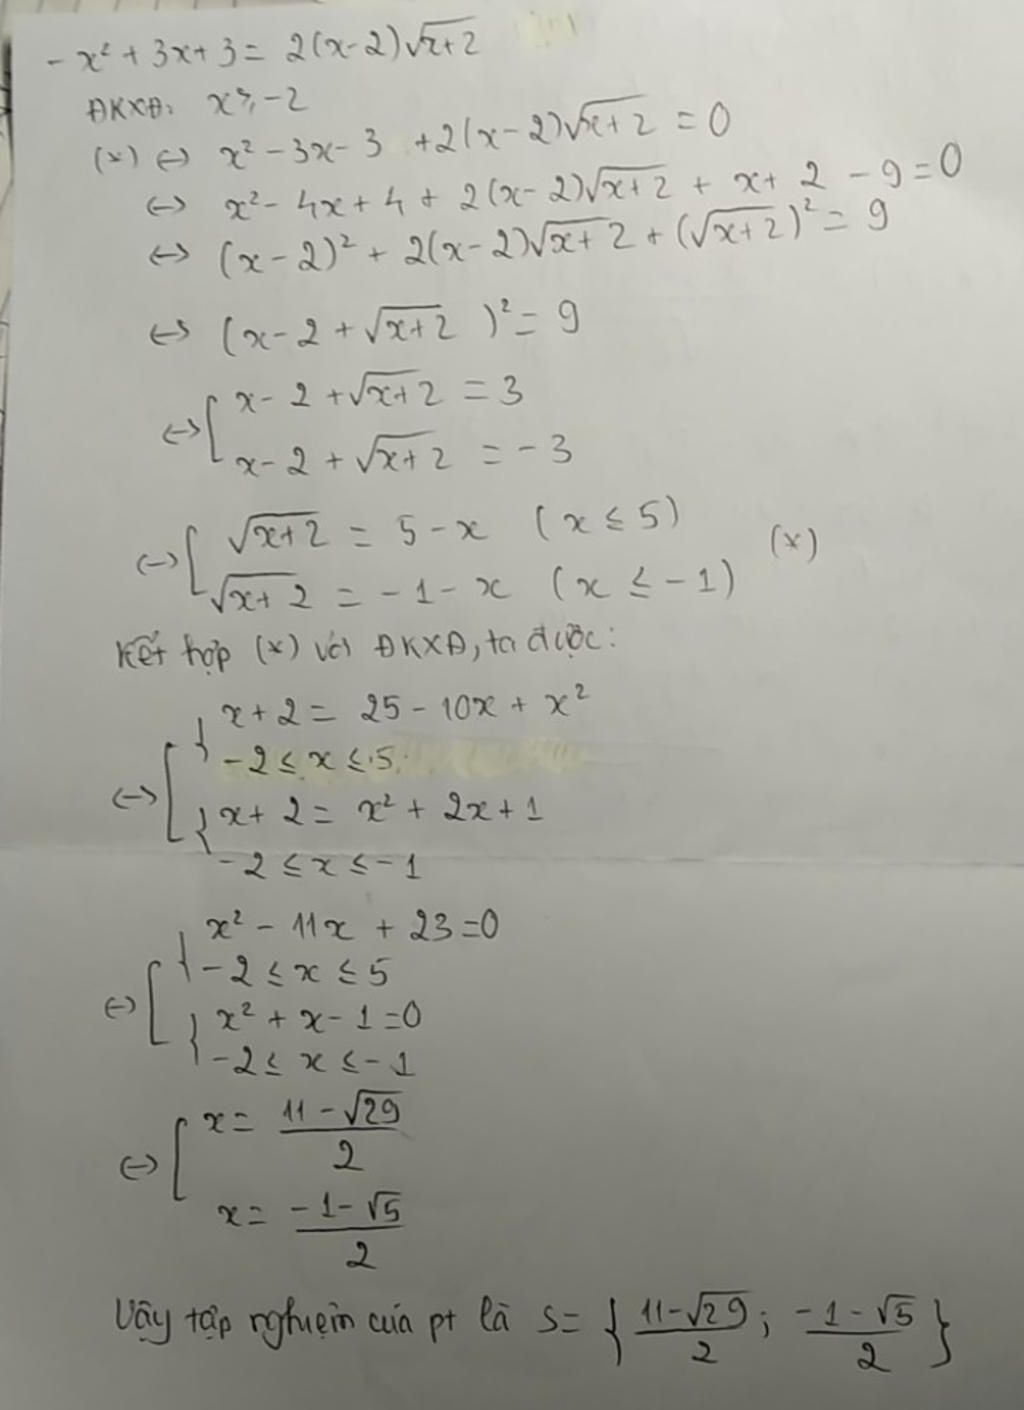 -x² + 3x + 3 = 2(x-2)√(x+2)
ĐKXĐ: x ≥ -2
(*) ⇔ x² - 3x - 3 + 2(x-2)√(x+2) = 0
⇔ x² - 4x + 4 + 2(x-2)√(x+2) + x + 2 - 9 = 0
⇔ (x-2)² + 2(x-2)√(x+2) + (√(x+2))² = 9
⇔ (x-2 + √(x+2))² = 9
x - 2 + √(x+2) = 3
⇔ [
x - 2 + √(x+2) = -3
√(x+2) = 5 - x (x ≤ 5)
⇔ [ (*)
√(x+2) = -1 - x (x ≤ -1)
Kết hợp (*) với ĐKXĐ, ta được:
{ x + 2 = 25 - 10x + x²
-2 ≤ x ≤ 5
⇔ [
{ x + 2 = x² + 2x + 1
-2 ≤ x ≤ -1
{ x² - 11x + 23 = 0
-2 ≤ x ≤ 5
⇔ [
{ x² + x - 1 = 0
-2 ≤ x ≤ -1
x = (11 - √29)/2
⇔ [
x = (-1 - √5)/2
Vậy tập nghiệm của pt là S = { (11-√29)/2 ; (-1-√5)/2 }